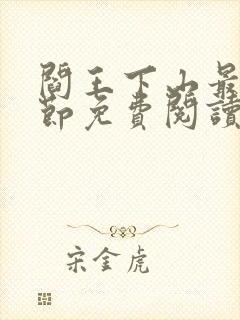 閻王下山最
節免費閱讀
宋金虎